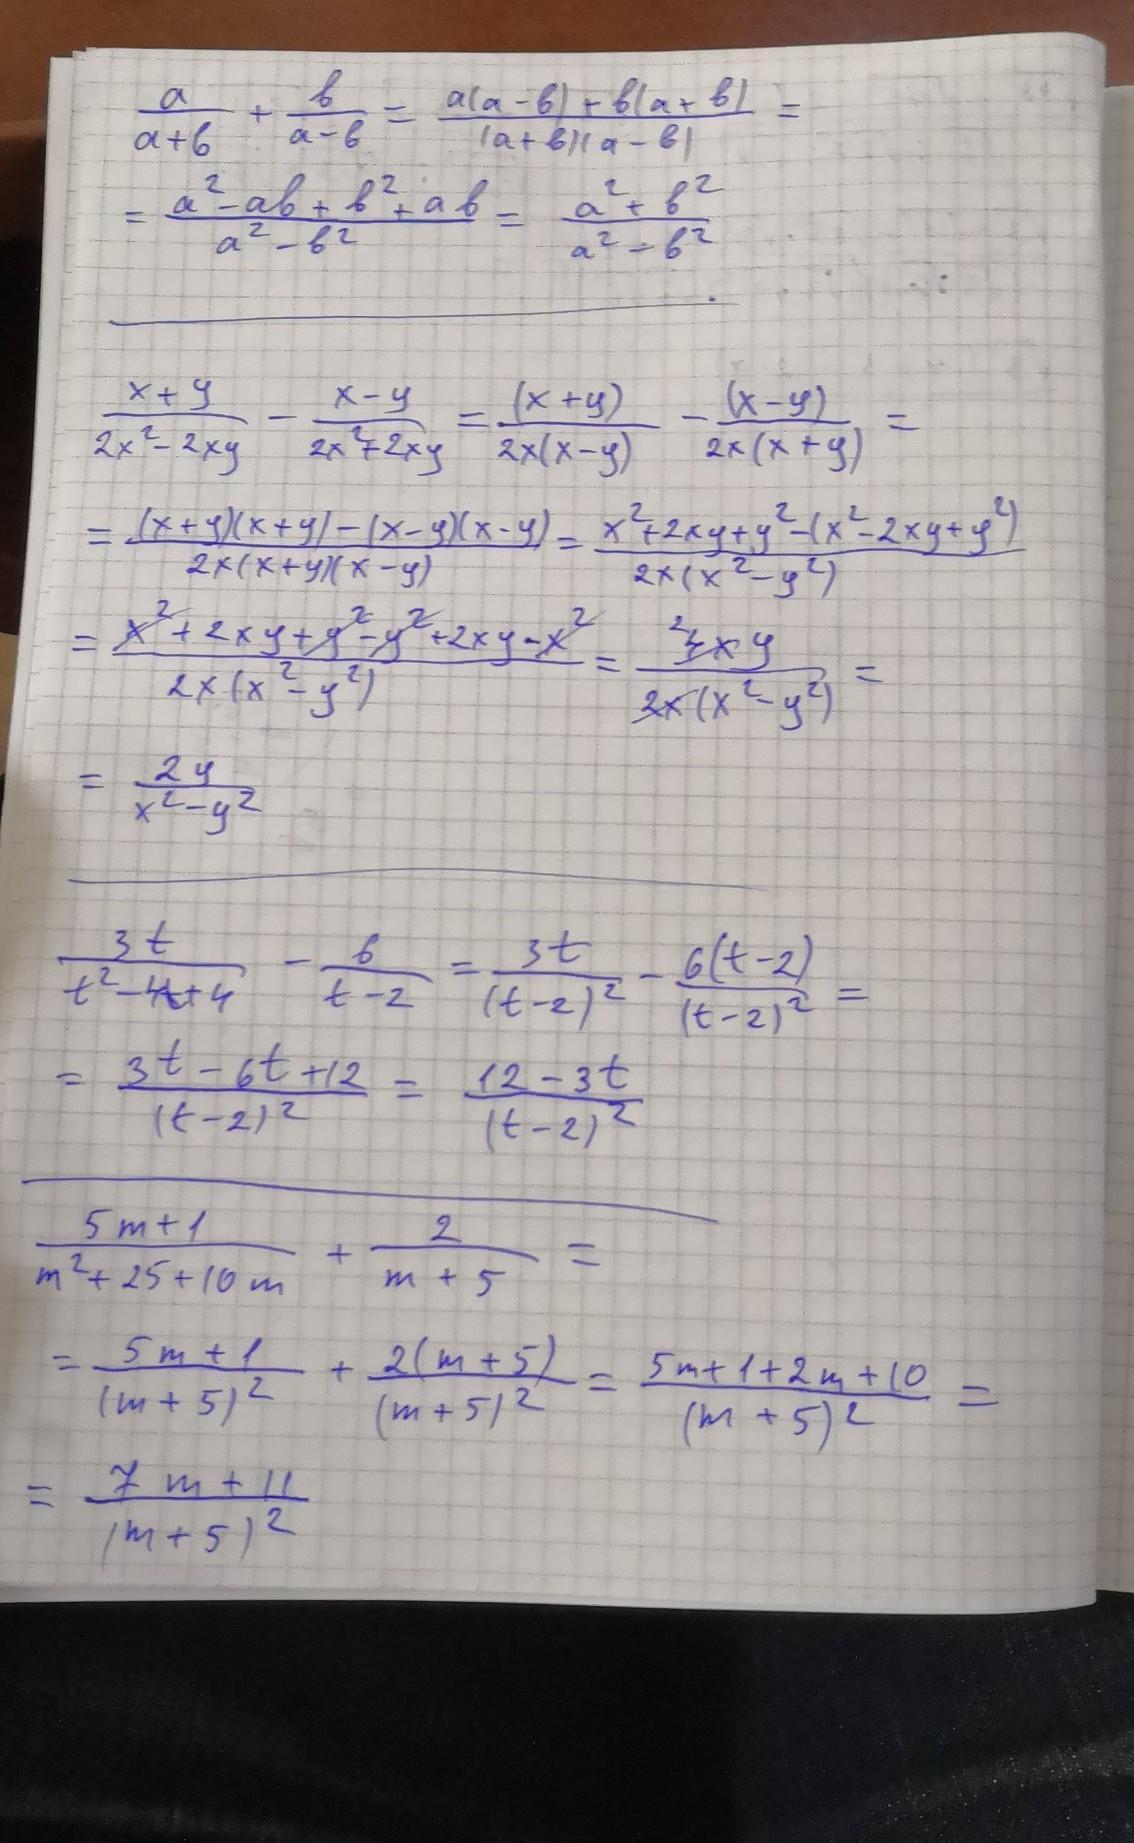 a/(a+b) + b/(a-b) = (a(a-b)+b(a+b))/((a+b)(a-b)) =
= (a²-ab+b²+ab)/(a²-b²) = (a²+b²)/(a²-b²)
(x+y)/(2x²-2xy) - (x-y)/(2x²+2xy) = (x+y)/(2x(x-y)) - (x-y)/(2x(x+y)) =
= ((x+y)(x+y)-(x-y)(x-y))/(2x(x+y)(x-y)) = (x²+2xy+y²-(x²-2xy+y²))/(2x(x²-y²))
= (x²+2xy+y²-y²+2xy-x²)/(2x(x²-y²)) = ²4xy/(2x(x²-y²)) =
= 2y/(x²-y²)
3t/(t²-4t+4) - 6/(t-2) = 3t/(t-2)² - 6(t-2)/(t-2)² =
= (3t-6t+12)/(t-2)² = (12-3t)/(t-2)²
(5m+1)/(m²+25+10m) + 2/(m+5) =
= (5m+1)/(m+5)² + 2(m+5)/(m+5)² = (5m+1+2m+10)/(m+5)² =
= (7m+11)/(m+5)²